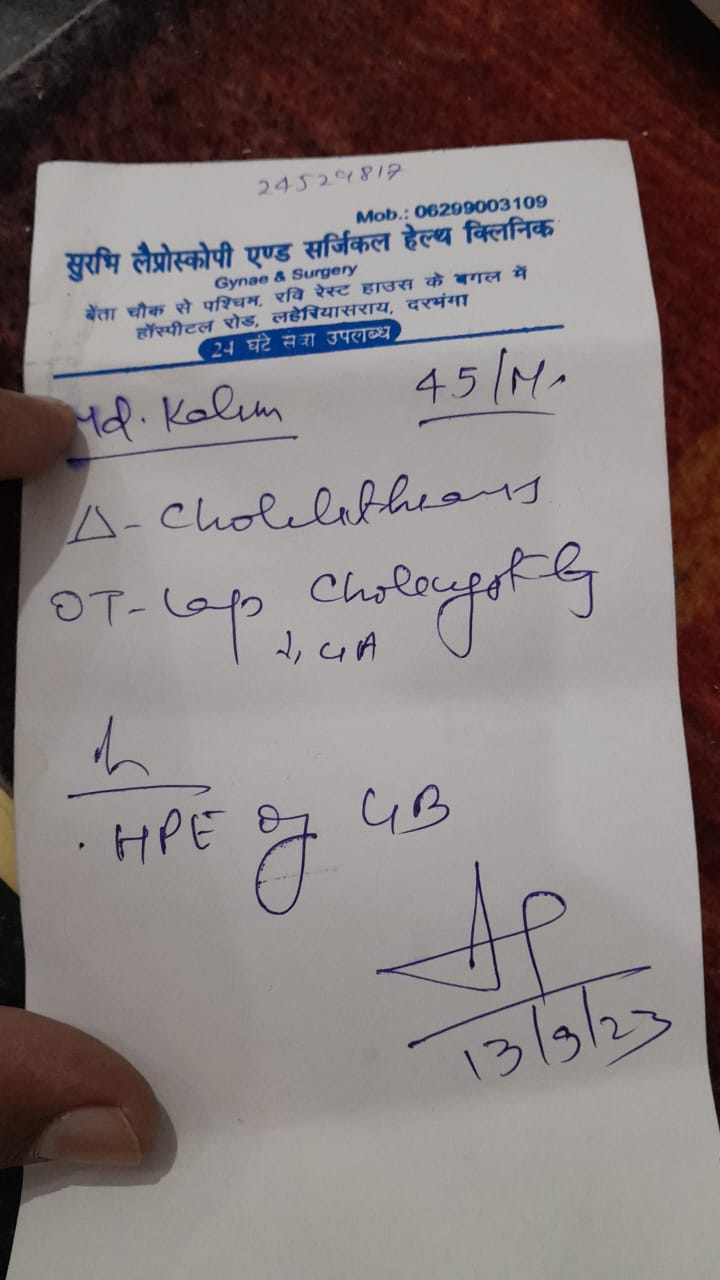 24529817
Mob.: 06299003109
सुरभि लैप्रोस्कोपी एण्ड सर्जिकल हेल्थ क्लिनिक
Gynae & Surgery
बेंता चौक से पश्चिम, रवि रेस्ट हाउस के बगल में
हॉस्पीटल रोड, लहेरियासराय, दरभंगा
24 घंटे सेवा उपलब्ध
Md. Kalim 45/M.
Δ- Cholelithiasis
OT- Lap
GA
HPE of GB
13/9/23